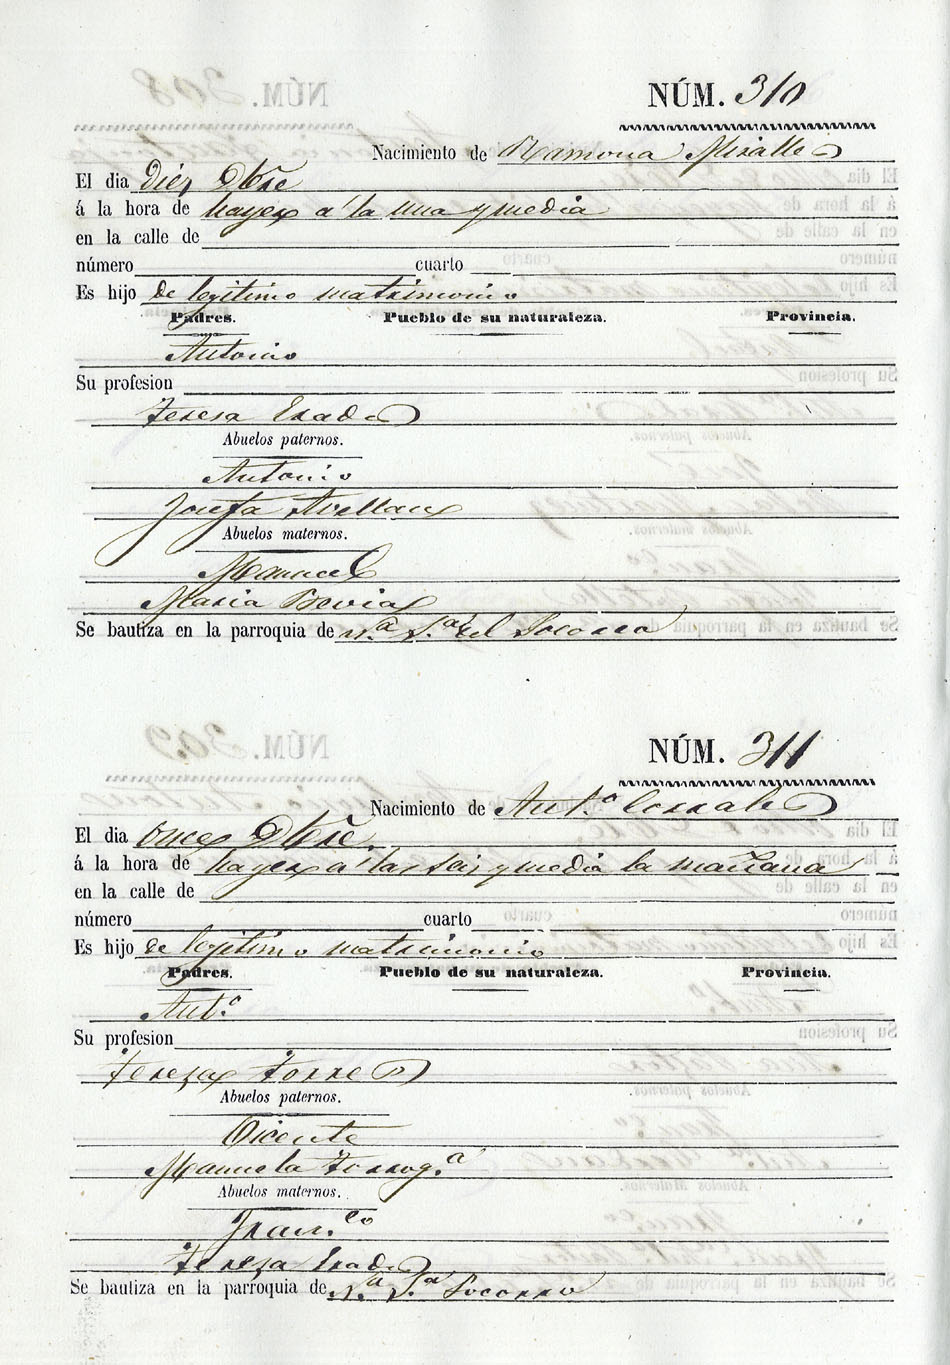 NÚM. 310
Nacimiento de Ramona Miralles
El dia diez Dbre
á la hora de hayer a la una y media
en la calle de
número cuarto
Es hijo de legitimo matrimonio
Padres. Pueblo de su naturaleza. Provincia.
Antonio
Su profesion
Teresa Lrades
Abuelos paternos.
Antonio
Josefa Avellan
Abuelos maternos.
Manuel
Maria Bevia
Se bautiza en la parroquia de N.ª S.ª del Socorro
NÚM. 311
Nacimiento de Ant.º Corrales
El dia once Dbre.
á la hora de hayer a las seis y media la mañana
en la calle de
número cuarto
Es hijo de legitimo matrimonio
Padres. Pueblo de su naturaleza. Provincia.
Ant.º
Su profesion
Tereza Torres
Abuelos paternos.
Vicente
Manuela Torrog.ª
Abuelos maternos.
Fran.co
Tereza Lrades
Se bautiza en la parroquia de N.ª S.ª Socorro